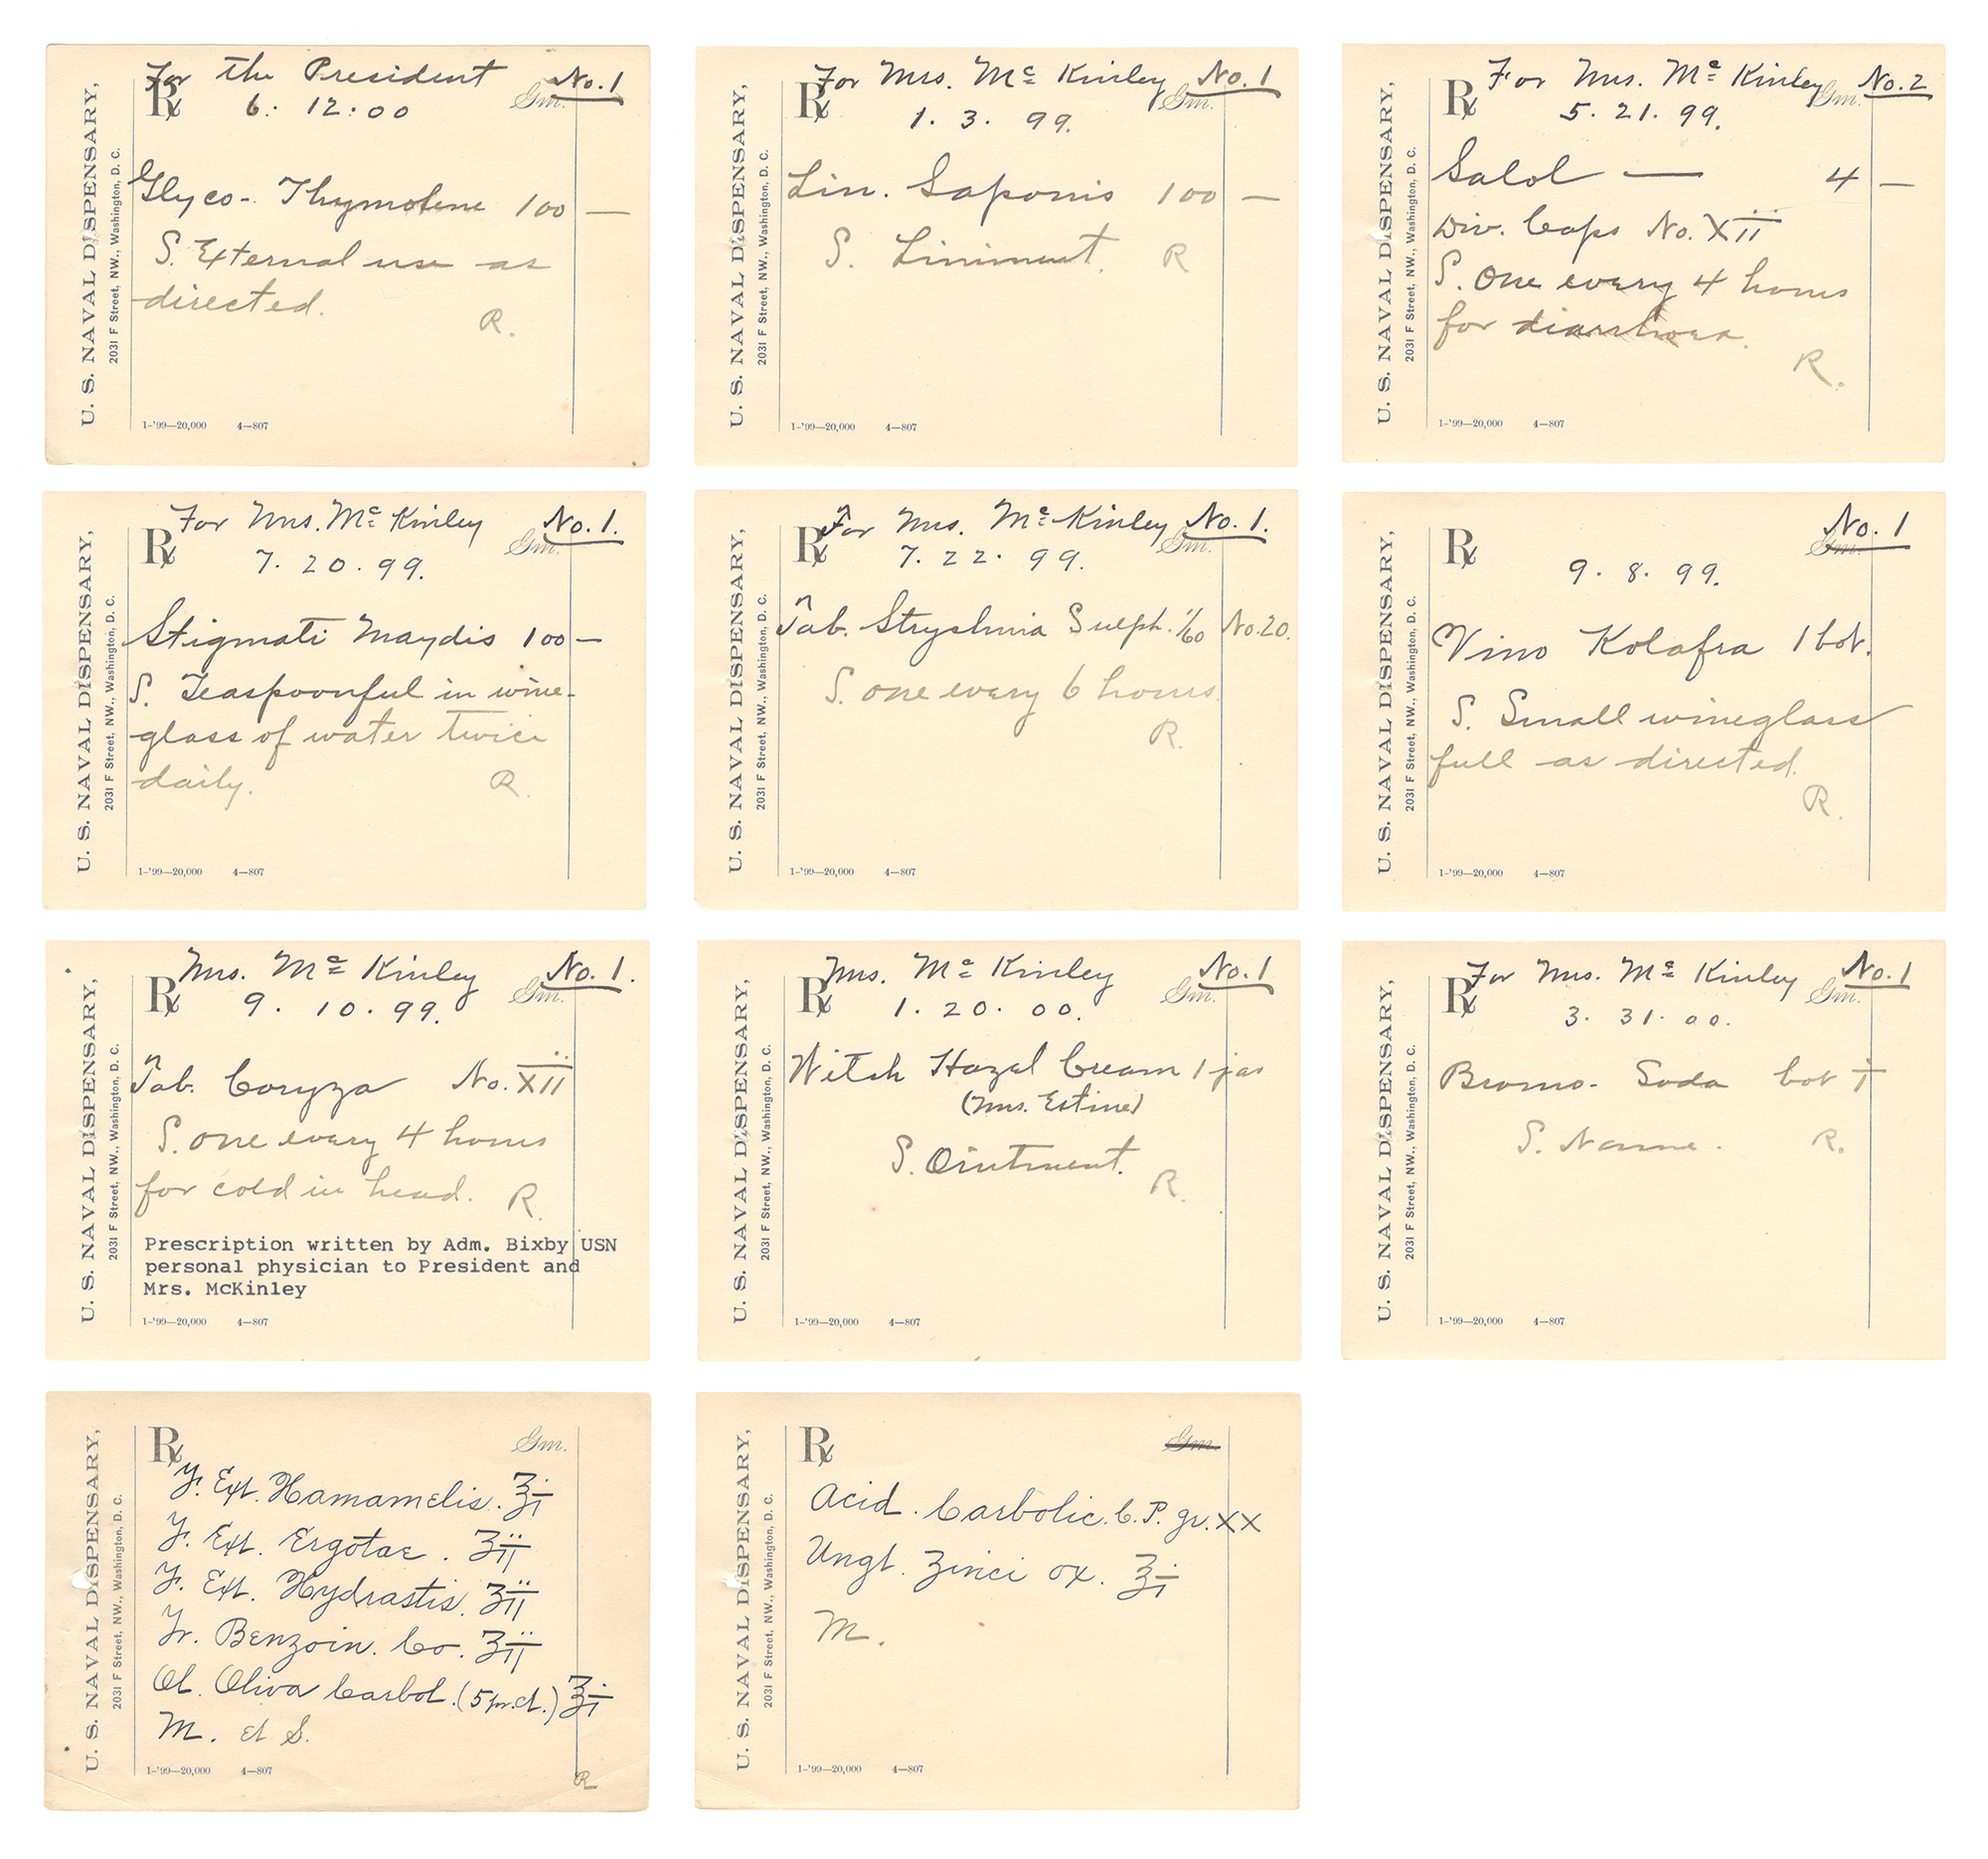 U. S. NAVAL DISPENSARY,
2031 F Street, NW., Washington, D. C.
For the President No. 1
Rx 6: 12:00 Gm.
Glyco- Thymolene 100 —
S. External use as
directed.
R.
1-'99—20,000 4—807
U. S. NAVAL DISPENSARY,
2031 F Street, NW., Washington, D. C.
For Mrs. Mc Kinley No. 1
Rx 1. 3. 99. Gm.
Lin. Saponis 100 —
S. Liniment. R
1-'99—20,000 4—807
U. S. NAVAL DISPENSARY,
2031 F Street, NW., Washington, D. C.
For Mrs. Mc Kinley No. 2
Rx 5. 21. 99. Gm.
Salol — 4 —
Div. Caps No. XII
S. One every 4 hours
for diarrhoea.
R.
1-'99—20,000 4—807
U. S. NAVAL DISPENSARY,
2031 F Street, NW., Washington, D. C.
For Mrs. Mc Kinley No. 1.
Rx 7. 20. 99. Gm.
Stigmati Maydis 100 —
S. Teaspoonful in wine-
glass of water twice
daily. R.
1-'99—20,000 4—807
U. S. NAVAL DISPENSARY,
2031 F Street, NW., Washington, D. C.
For Mrs. Mc Kinley No. 1.
Rx 7. 22. 99. Gm.
Tab. Strychnia Sulph. 1/60 No. 20.
S. one every 6 hours.
R.
1-'99—20,000 4—807
U. S. NAVAL DISPENSARY,
2031 F Street, NW., Washington, D. C.
No. 1
Rx Gm.
9. 8. 99.
Vino Kolafra 1 bot.
S. Small wineglass
full as directed.
R.
1-'99—20,000 4—807
U. S. NAVAL DISPENSARY,
2031 F Street, NW., Washington, D. C.
Mrs. Mc Kinley No. 1.
Rx 9. 10. 99. Gm.
Tab. Coryza No. XII
S. one every 4 hours
for cold in head. R.
Prescription written by Adm. Bixby USN
personal physician to President and
Mrs. McKinley
1-'99—20,000 4—807
U. S. NAVAL DISPENSARY,
2031 F Street, NW., Washington, D. C.
Mrs. Mc Kinley No. 1
Rx 1. 20. 00. Gm.
Witch Hazel Cream 1 jar
(Mrs. Estine)
S. Ointment.
R.
1-'99—20,000 4—807
U. S. NAVAL DISPENSARY,
2031 F Street, NW., Washington, D. C.
For Mrs. Mc Kinley No. 1
Rx 3. 31. 00. Gm.
Bromo- Soda bot i
S. Name. R.
1-'99—20,000 4—807
U. S. NAVAL DISPENSARY,
2031 F Street, NW., Washington, D. C.
Rx Gm.
F. Ext. Hamamelis. ʒi
F. Ext. Ergotae. ʒii
F. Ext. Hydrastis. ʒii
Tr. Benzoin. Co. ʒii
Ol. Oliva Carbol. (5 pr. ct.) ℥i
M. et S.
1-'99—20,000 4—807
R
U. S. NAVAL DISPENSARY,
2031 F Street, NW., Washington, D. C.
Rx Gm.
Acid. Carbolic. C. P. gr. XX
Ungt. Zinci ox. ℥i
M.
1-'99—20,000 4—807